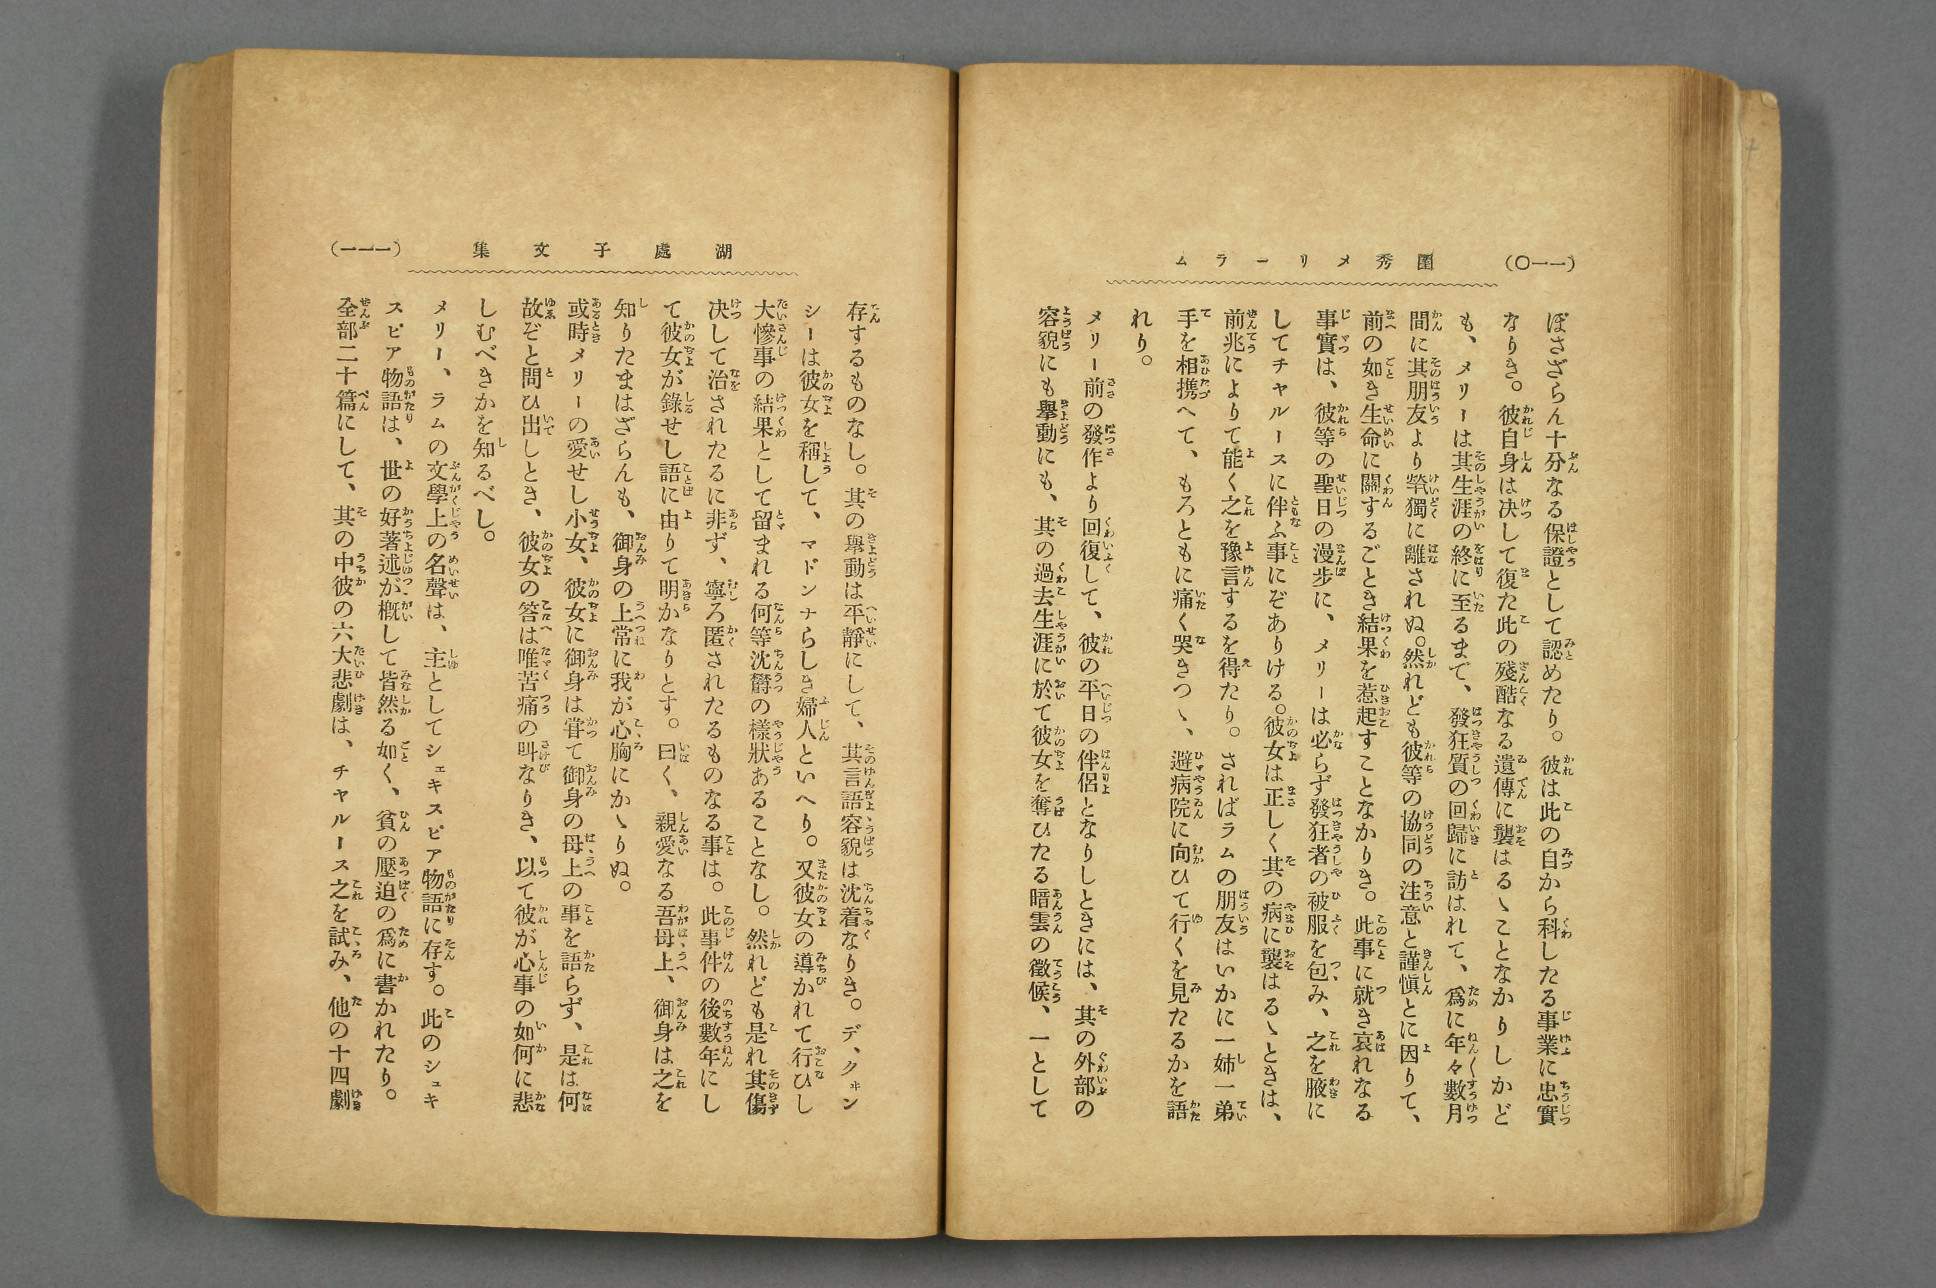 (一一〇) 閨秀メリーラム
ぼさざらん十分なる保證として認めたり。彼は此の自から科したる事業に忠實
なりき。彼自身は決して復た此の殘酷なる遺傳に襲はるゝことなかりしかど
も、メリーは其生涯の終に至るまで、發狂質の回歸に訪はれて、爲に年々數月
間に其朋友より煢獨に離されぬ。然れども彼等の協同の注意と謹愼とに因りて、
前の如き生命に關するごとき結果を惹起すことなかりき。此事に就き哀れなる
事實は、彼等の聖日の漫步に、メリーは必らず發狂者の被服を包み、之を腋に
してチャルースに伴ふ事にぞありける。彼女は正しく其の病に襲はるゝときは、
前兆によりて能く之を豫言するを得たり。さればラムの朋友はいかに一姉一弟
手を相携へて、もろともに痛く哭きつゝ、避病院に向ひて行くを見たるかを語
れり。
メリー前の發作より回復して、彼の平日の伴侶となりしときには、其の外部の
容貌にも擧動にも、其の過去生涯に於て彼女を奪ひたる暗雲の徵候、一として
湖處子文集 (一一一)
存するものなし。其の擧動は平靜にして、其言語容貌は沈着なりき。デ、クヰン
シーは彼女を稱して、マドンナらしき婦人といへり。又彼女の導かれて行ひし
大慘事の結果として留まれる何等沈欝の樣狀あることなし。然れども是れ其傷
決して治されたるに非ず、寧ろ匿されたるものなる事は。此事件の後數年にし
て彼女が錄せし語に由りて明かなりとす。曰く、親愛なる吾母上、御身は之を
知りたまはざらんも、御身の上常に我が心胸にかゝりぬ。
或時メリーの愛せし小女、彼女に御身は甞て御身の母上の事を語らず、是は何
故ぞと問ひ出しとき、彼女の答は唯苦痛の叫なりき、以て彼が心事の如何に悲
しむべきかを知るべし。
メリー、ラムの文學上の名聲は、主としてシェキスピア物語に存す。此のシェキ
スピア物語は、世の好著述が槪して皆然る如く、貧の壓迫の爲に書かれたり。
全部二十篇にして、其の中彼の六大悲劇は、チャルース之を試み、他の十四劇